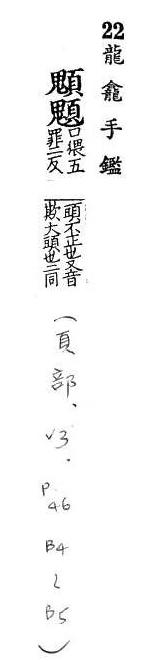 22 龍龕手鑑
口猥五
罪二反
頭不正也又音
欺大頭也二同
(頁部、v3. P.46 B4~B5)